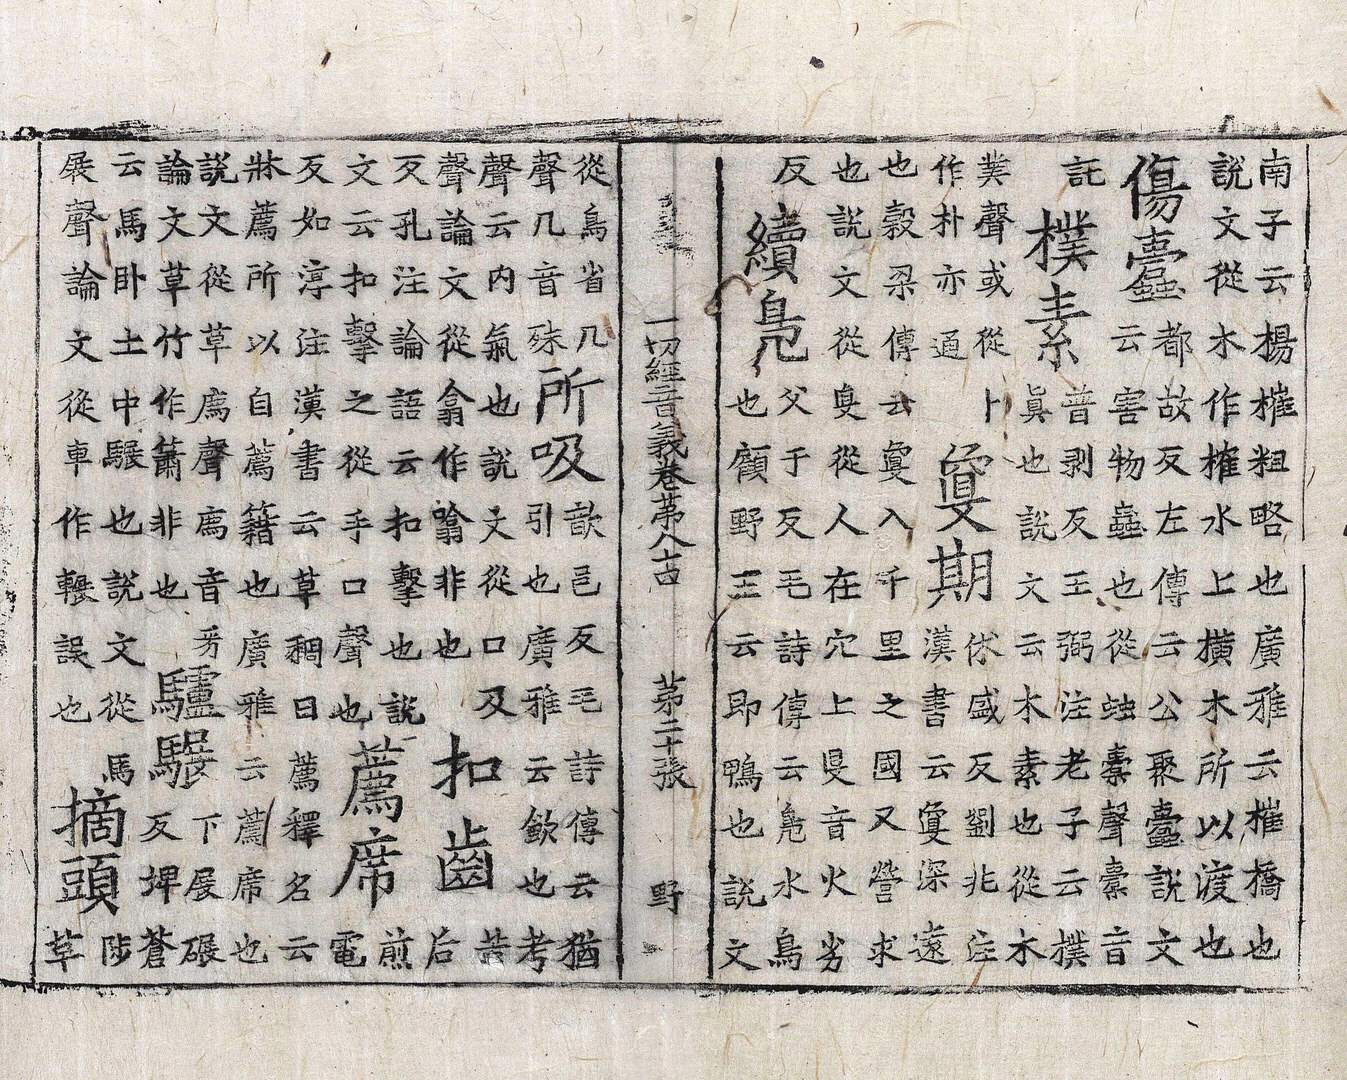 南子云楊榷粗略也廣雅云榷橋也
說文從木作榷水上橫木所以渡也
傷蠹
都故反左傳云公聚蠹說文
云害物蠹也從䖵橐聲橐音
託
樸素
普剥反王弼注老子云樸
真也說文云木素也從木
業聲或從卜
作朴亦通
敻期
休盛反劉兆注
漢書云敻深遠
也穀梁傳云敻入千里之國又營求
也說文從𡕥從人在穴上𡕥音火劣
反
續鳧
父于反毛詩傳云鳧水鳥
也顧野王云即鴨也說文
一切經音義卷第八十四 第二十張 野
從鳥省几
聲几音殊
所吸
歆邑反毛詩傳云猶
引也廣雅云飲也考
聲云內氣也說文從口及
聲論文從翕作噏非也
扣齒
苦
后
反孔注論語云扣擊也說
文云扣擊之從手口聲也
薦席
煎
電
反如淳注漢書云草稠曰薦釋名云
牀薦所以自薦籍也廣雅云薦席也
說文從草廌聲廌音豸
論文草竹作䔥非也
驢𩥇
下展碾
反埤蒼
云馬卧土中𩥇也說文從馬
展聲論文從車作輾誤也
摘頭
陟
革